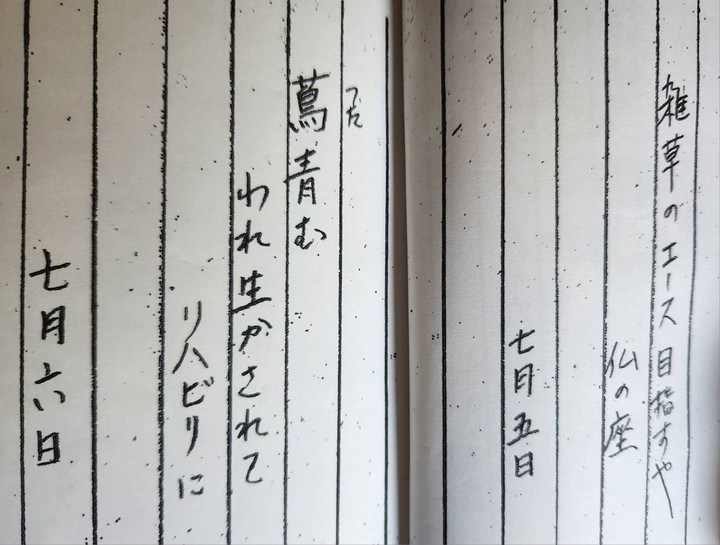 雑草のエース目指すや
仏の座
七月五日
つた
蔦青む
われ生かされて
リハビリに
七月六日